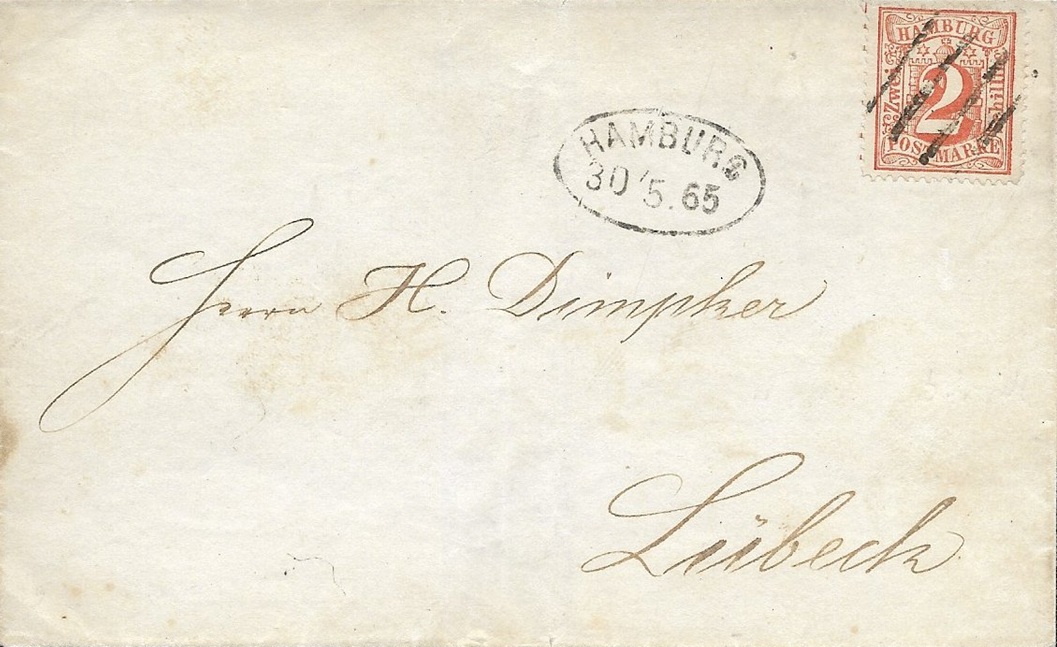 HAMBURG
2
Zwei
Schilling
POSTMARKE
HAMBURG
30/5.65
Herrn H. Dimpker
Lübeck